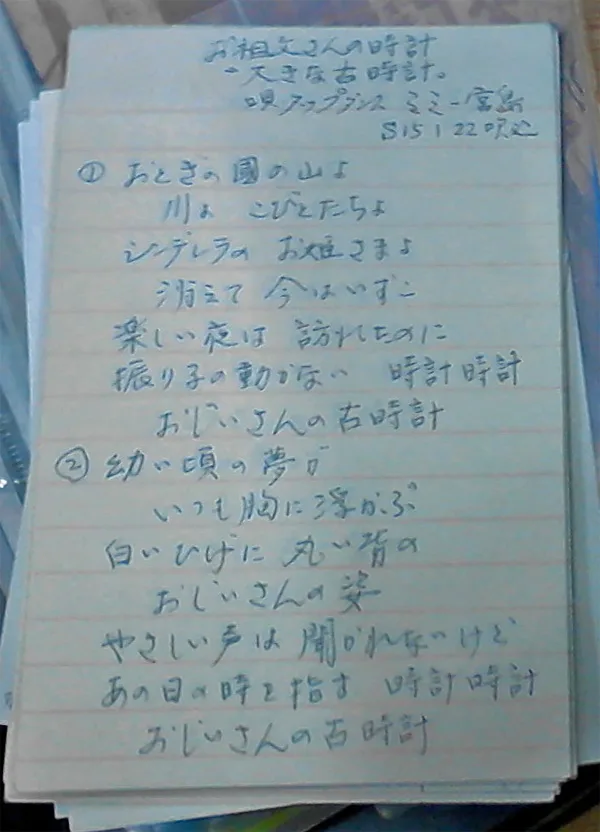 お祖父さんの時計
-大きな古時計。
唄 タップダンス ミミー宮島
S15 1 22 吹込
① おとぎの國の山よ
川よ こびとたちよ
シンデレラの お姫さまよ
消えて 今はいずこ
楽しい夜は 訪れたのに
振り子の動かない 時計時計
おじいさんの古時計
② 幼い頃の夢が
いつも胸に浮かぶ
白いひげに 丸い背の
おじいさんの姿
やさしい声は 聞かれないけど
あの日の時を指す 時計時計
おじいさんの古時計